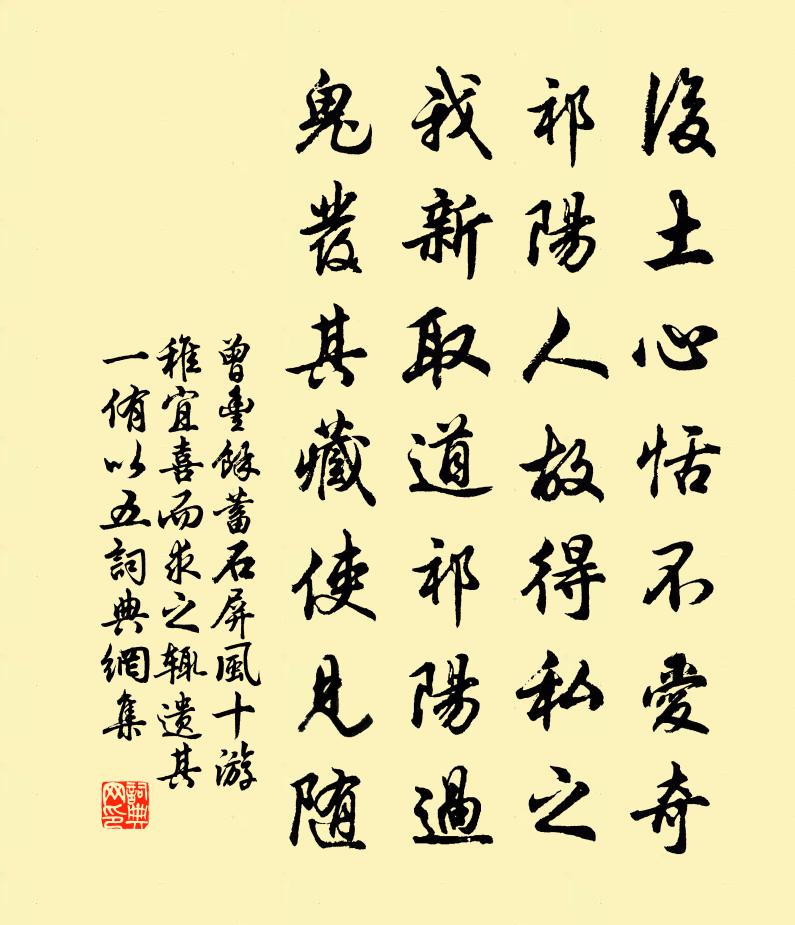 後土心恬不愛奇
祁陽人故得私之
我新取道祁陽過
鬼發其藏使見随
曾豐餘蓄石屏風十游
稚宜喜而求之輒遺其
一侑以五詞典網集
詞典网印